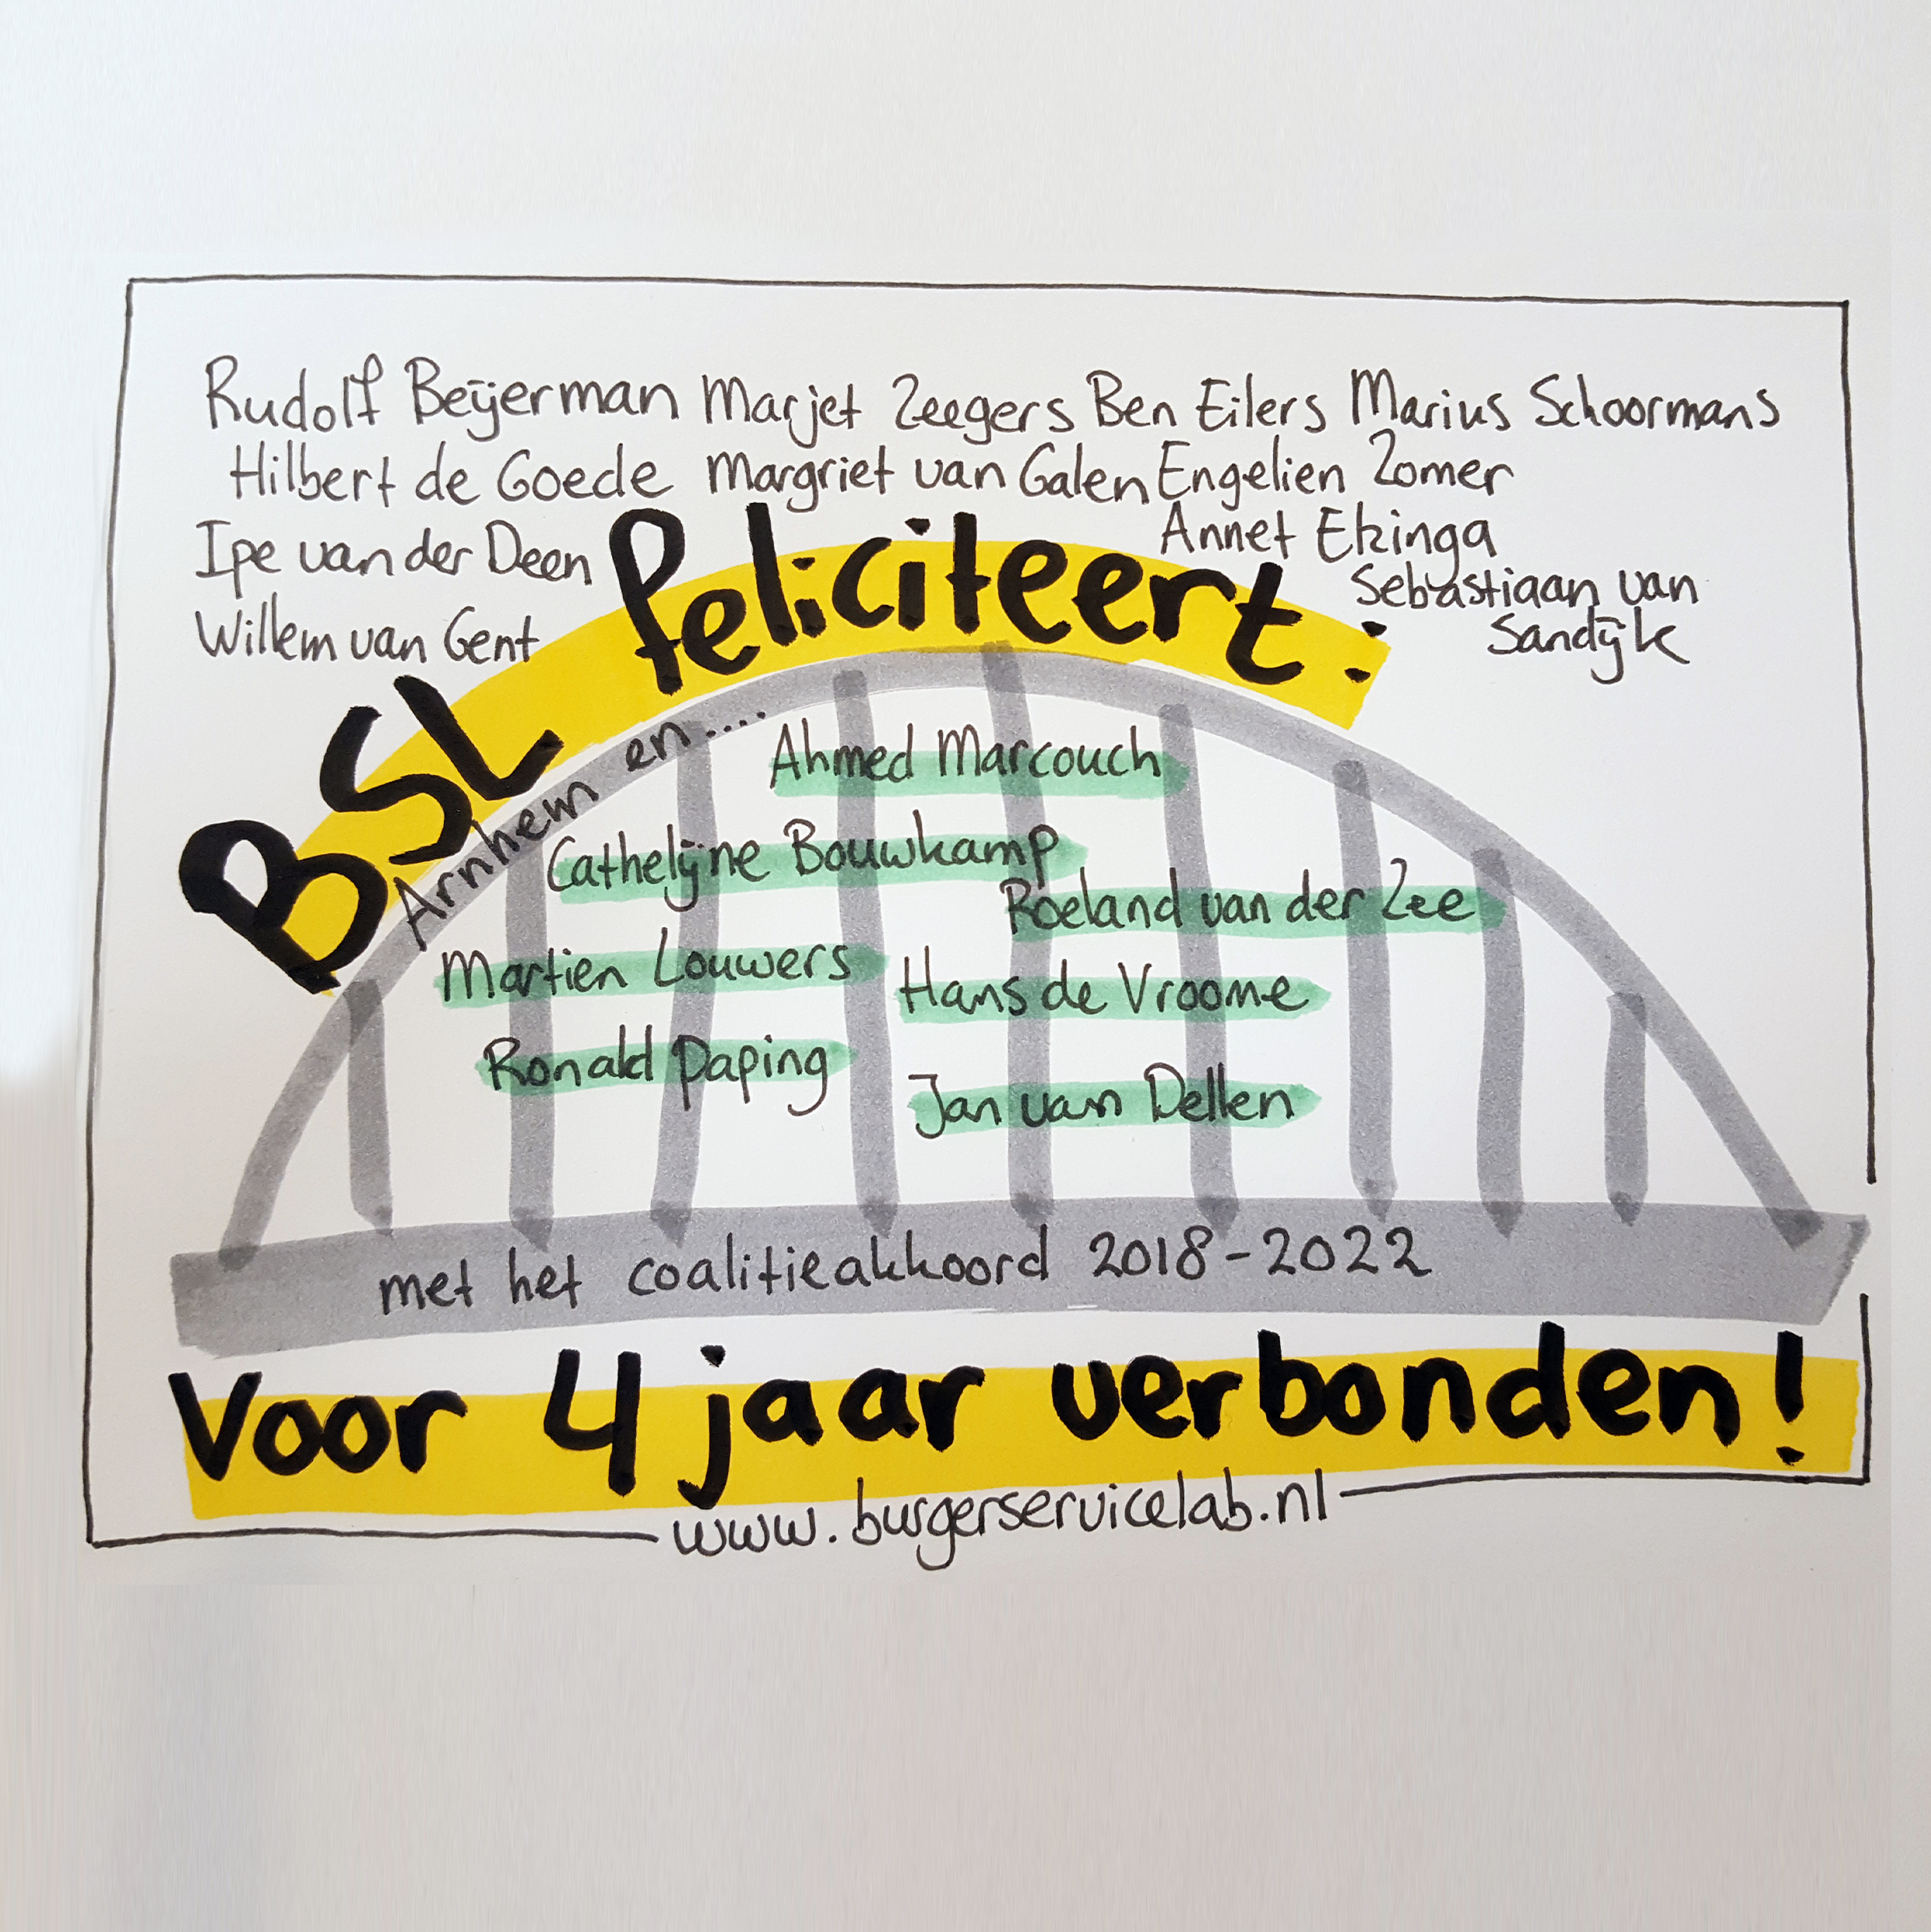 Rudolf Beijerman Marjet Zeegers Ben Eilers Marius Schoormans
Hilbert de Goede Margriet van Galen Engelien Zomer
Ipe van der Deen
Annet Elzinga
Willem van Gent
Sebastiaan van
Sandijk
BSL feliciteert:
Arnhem en....
Ahmed Marcouch
Cathelijne Bouwkamp
Roeland van der Zee
Martien Louwers
Hans de Vroome
Ronald Paping
Jan van Dellen
met het coalitieakkoord 2018-2022
Voor 4 jaar verbonden!
www.burgerservicelab.nl